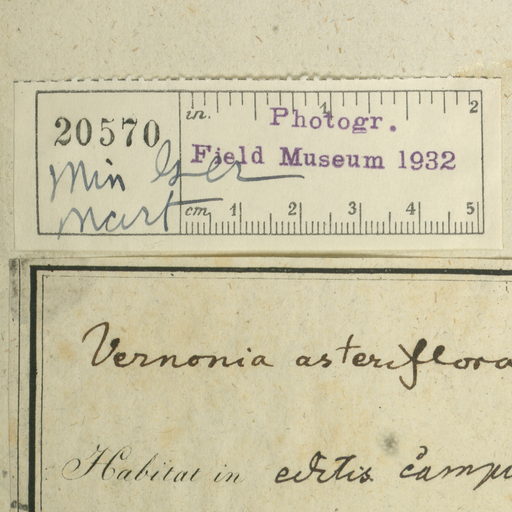 20570
in. 1 2
Photogr.
Field Museum 1932
Min Ger
Mart
cm 1 2 3 4 5
Vernonia asteriflora
Habitat in editis campi